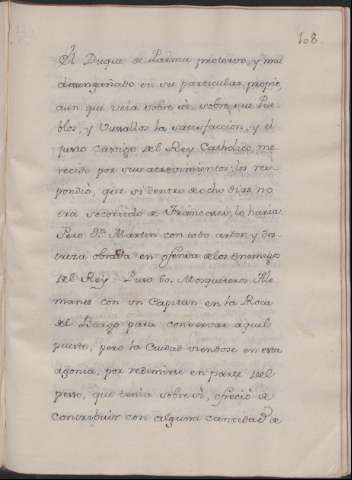 108.
El Duque de Parma protervo, y mal
desengañado en su particular, propie,
aun que veía sobre sí, sobre sus Pue-
blos, y Vasallos la satisfaccion, y el
justo castigo del Rey Catholico, me-
recido por sus atrevimientos; les res-
pondió, que si dentro de ocho dias, no
era socorrido de Franceses, lo haria.
Pero Dn. Martin con todo ardor, y des-
treza obraba en ofensa de los Enemigos
del Rey. Puso 60. Mosqueteros Ale-
manes con un Capitan en la Roca
del Burgo para conservar aquel
puerto, pero la Ciudad viendose en esta
agonia, por redimirse en parte del
peso, que tenia sobre si, ofreció de
contribuir con alguna cantidad de